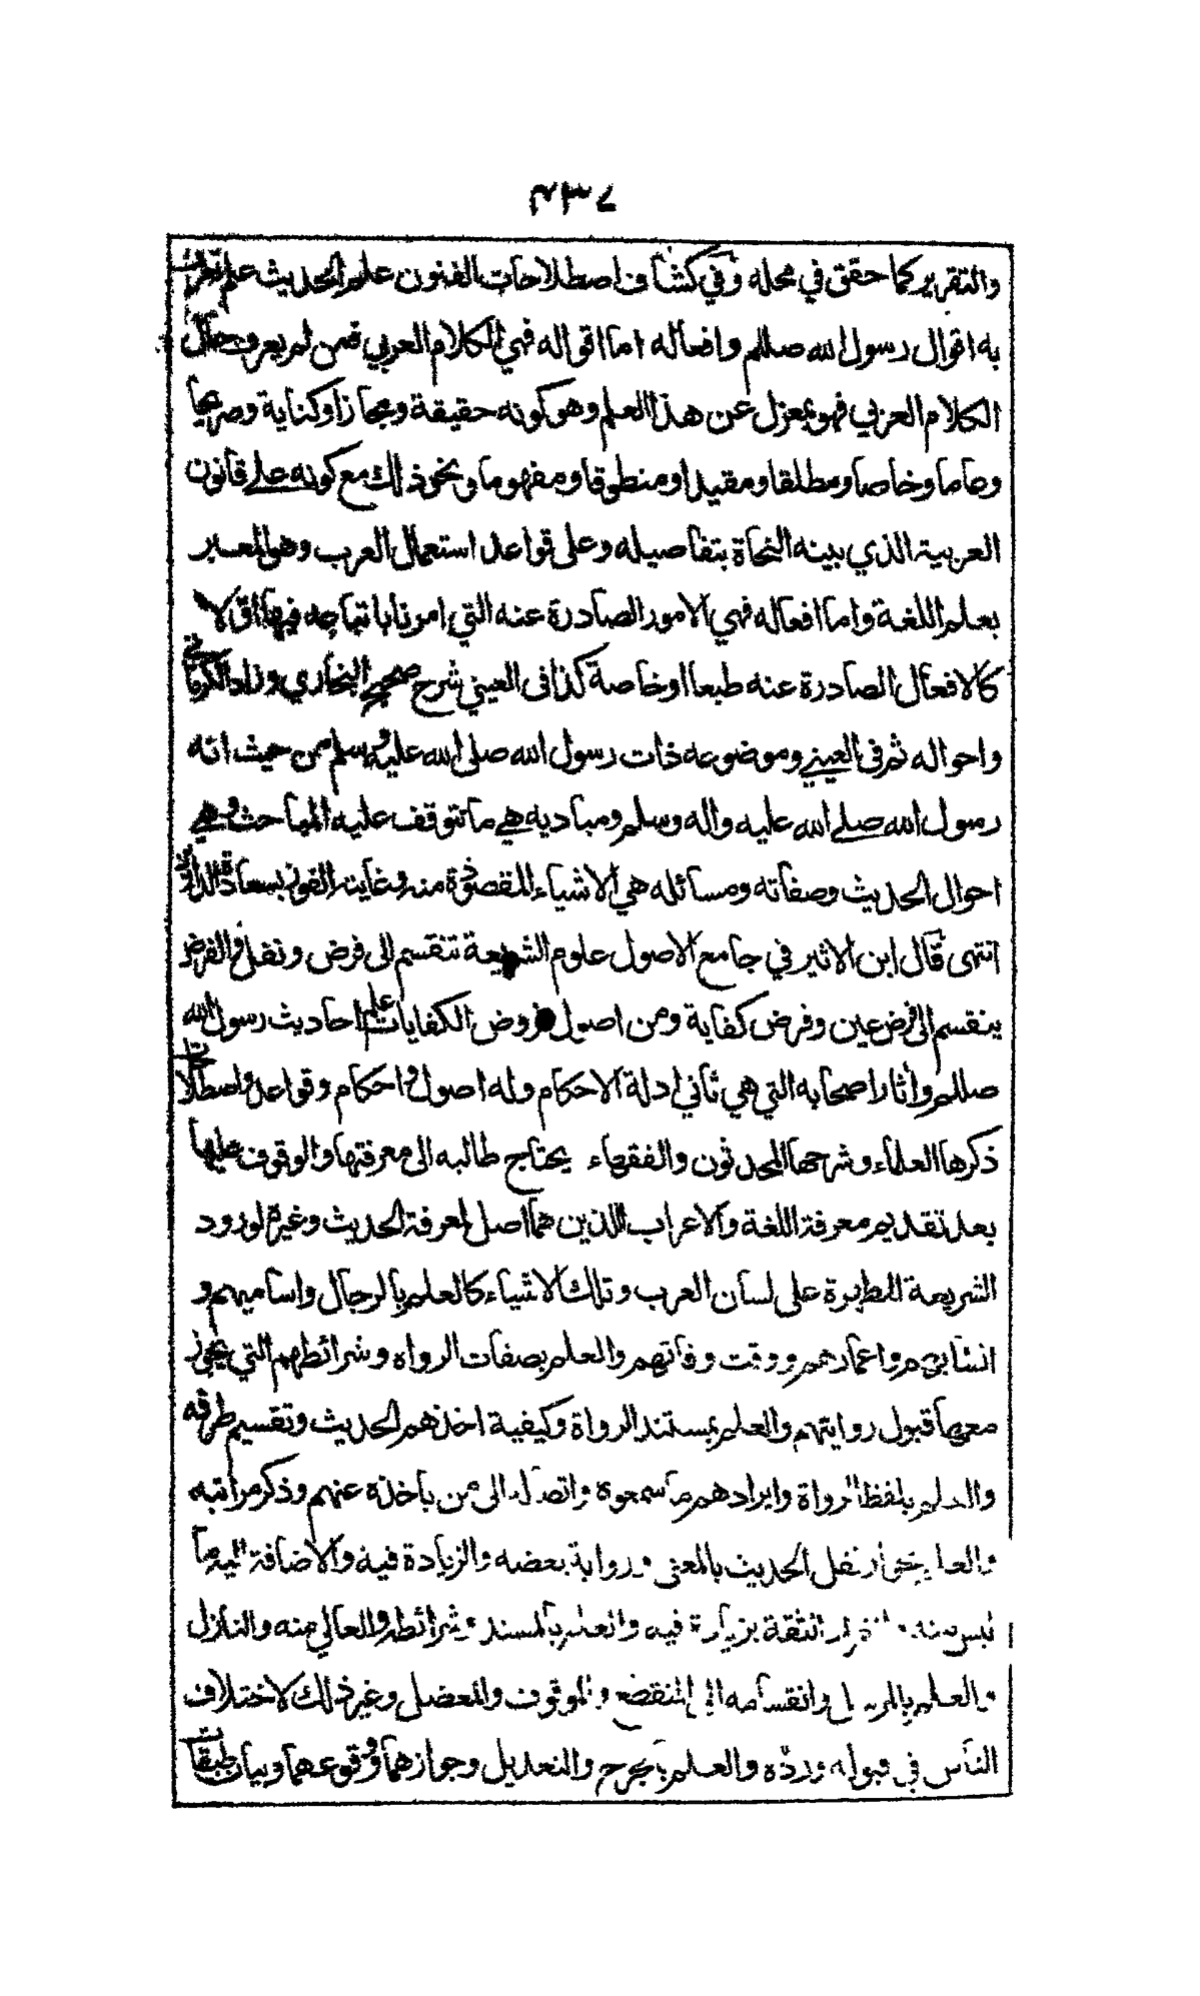 والتقرير كما حقق في محله وفي كشاف اصطلاحات الفنون علم الحديث علم تعرف
به اقوال رسول الله صللم وافعاله اما اقواله فهي الكلام العربي فمن لم يعرف حال
الكلام العربي فهو بمعزل عن هذا العلم وهو كونه حقيقة ومجازا وكناية وصريحا
وعاما وخاصا ومطلقا ومقيدا ومنطوقا ومفهوما ونحو ذلك مع كونه على قانون
العربية الذي بينه النحاة بتفاصيله وعلى قواعد استعمال العرب وهو المعبر
بعلم اللغة واما افعاله فهي الامور الصادرة عنه التي امرنا باتباعه فيها اولا
كالافعال الصادرة عنه طبعا او خاصة كذا في العيني شرح صحيح البخاري وزاد الكرماني
واحواله ثم في العيني وموضوعه ذات رسول الله صلى الله عليه وسلم من حيث انه
رسول الله صلى الله عليه واله وسلم ومباديه هي ما تتوقف عليه المباحث وهي
احوال الحديث وصفاته ومسائله هي الاشياء المقصودة منه وغايته الفوز بسعادة الدارين
انتهى قال ابن الاثير في جامع الاصول علوم الشريعة تنقسم الى فرض ونفل والفرض
ينقسم الى فرض عين وفرض كفاية ومن اصول فروض الكفايات علم احاديث رسول الله
صللم وأثار اصحابه التي هي ثاني ادلة الاحكام وله اصول واحكام وقواعد واصطلاحات
ذكرها العلماء وشرحها المحدثون والفقهاء يحتاج طالبه الى معرفتها والوقوف عليها
بعد تقديم معرفة اللغة والاعراب اللذين هما اصل لمعرفة الحديث وغيره لورود
الشريعة المطهرة على لسان العرب وتلك الاشياء كالعلم بالرجال واساميهم و
انسابهم واعمارهم ووقت وفاتهم والعلم بصفات الرواه وشرائطهم التي يجوز
معها قبول روايتهم والعلم بمستند الرواة وكيفية اخذهم الحديث وتقسيم طرقه
والعلم بلفظ الرواة وايرادهم ما سمعوه واتصاله الى من يأخذه عنهم وذكر مراتبه
والعلم بجواز نقل الحديث بالمعنى ورواية بعضه والزيادة فيه والاضافة اليه ما
ليس منه وانفراد الثقة بزيادة فيه والعلم بالمسند وشرائطه والعالي منه والنازل
والعلم بالمرسل وانقسامه الى المنقطع والموقوف والمعضل وغير ذلك لاختلاف
الناس في قبوله ورده والعلم بالجرح والتعديل وجوازهما ووقوعهما وبيان طبقات